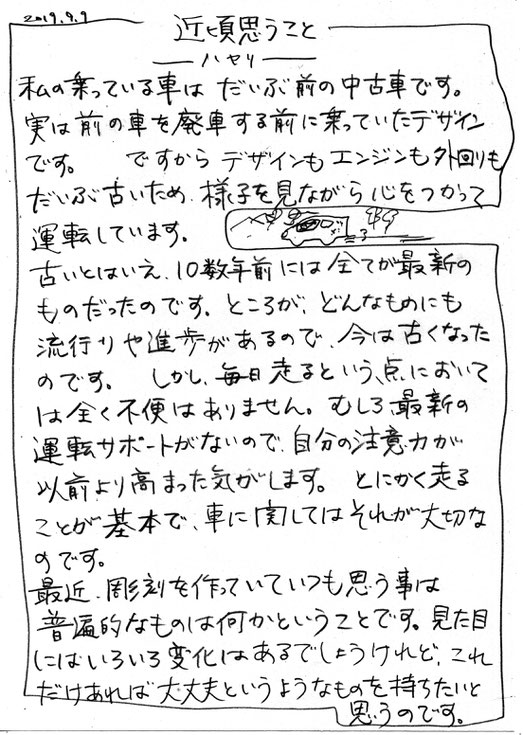 2019.9.9
近頃思うこと
ハヤリ
私の乗っている車は だいぶ前の中古車です。
実は前の車を廃車する前に乗っていたデザイン
です。 ですから デザインも エンジンも 外回りも
だいぶ古いため、様子を見ながら 心をつかって
運転しています。
古いとはいえ、10数年前には 全てが最新の
ものだったのです。ところが、どんなものにも
流行りや進歩があるので、今は古くなった
のです。 しかし、毎日走るという点において
は全く不便はありません。むしろ最新の
運転サポートがないので、自分の注意力が
以前より高まった気がします。 とにかく走る
ことが基本で、車に関してはそれが大切な
のです。
最近、彫刻を作っていていつも思う事は
普遍的なものは何かということです。見た目
にはいろいろ変化はあるでしょうけれど、これ
だけあれば大丈夫というようなものを持ちたいと
思うのです。